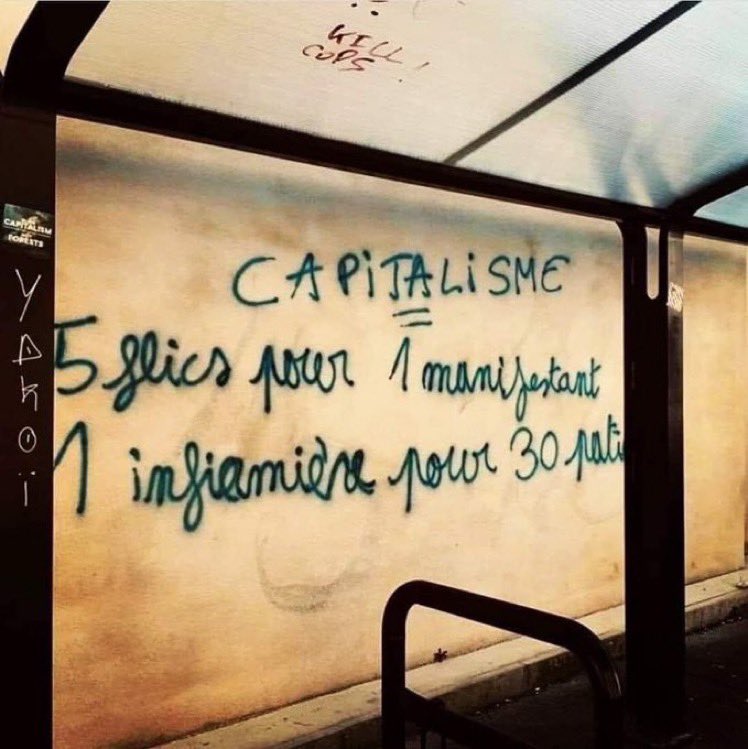 KILL
COPS!
CAPITALISM
FORESTS
CAPITALISME
=
5 flics pour 1 manifestant
1 infirmière pour 30 pati